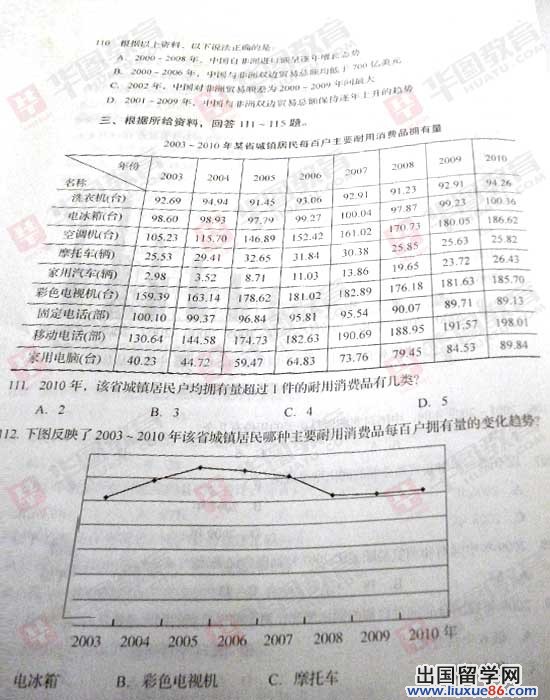 110. 根据以上资料，以下说法正确的是
A. 2000~2008年，中国自非洲进口额呈逐年增长态势
B. 2000~2006年，中国与非洲双边贸易总额均低于700亿美元
C. 2002年，中国对非洲贸易顺差为2000~2009年间最大
D. 2001~2009年，中国与非洲双边贸易总额保持逐年上升的趋势
三、根据所给资料，回答111~115题。
2003~2010年某省城镇居民每百户主要耐用消费品拥有量
名称 年份 2003 2004 2005 2006 2007 2008 2009 2010
洗衣机(台) 92.69 94.94 91.45 93.06 92.91 91.23 92.91 94.26
电冰箱(台) 98.60 98.93 97.79 99.27 100.04 97.87 99.23 100.36
空调机(台) 105.23 115.70 146.89 152.42 161.02 170.73 180.05 186.62
摩托车(辆) 25.53 29.41 32.65 31.84 30.38 25.85 25.63 25.82
家用汽车(辆) 2.98 3.52 8.71 11.03 13.86 19.65 23.72 26.43
彩色电视机(台) 159.39 163.14 178.62 181.02 182.89 176.18 181.63 185.70
固定电话(部) 100.10 99.37 96.84 95.81 95.54 90.07 89.71 89.13
移动电话(部) 130.64 144.58 174.73 182.63 190.69 188.95 191.57 198.01
家用电脑(台) 40.23 44.72 59.47 64.83 73.76 79.45 84.53 89.84
111. 2010年，该省城镇居民户均拥有量超过1件的耐用消费品有几类？
A. 2 B. 3 C. 4 D. 5
112. 下图反映了2003~2010年该省城镇居民哪种主要耐用消费品每百户拥有量的变化趋势？
2003 2004 2005 2006 2007 2008 2009 2010年
电冰箱 B. 彩色电视机 C. 摩托车
华图教育
HUATU.COM
出国留学网
www.liuxue86.com